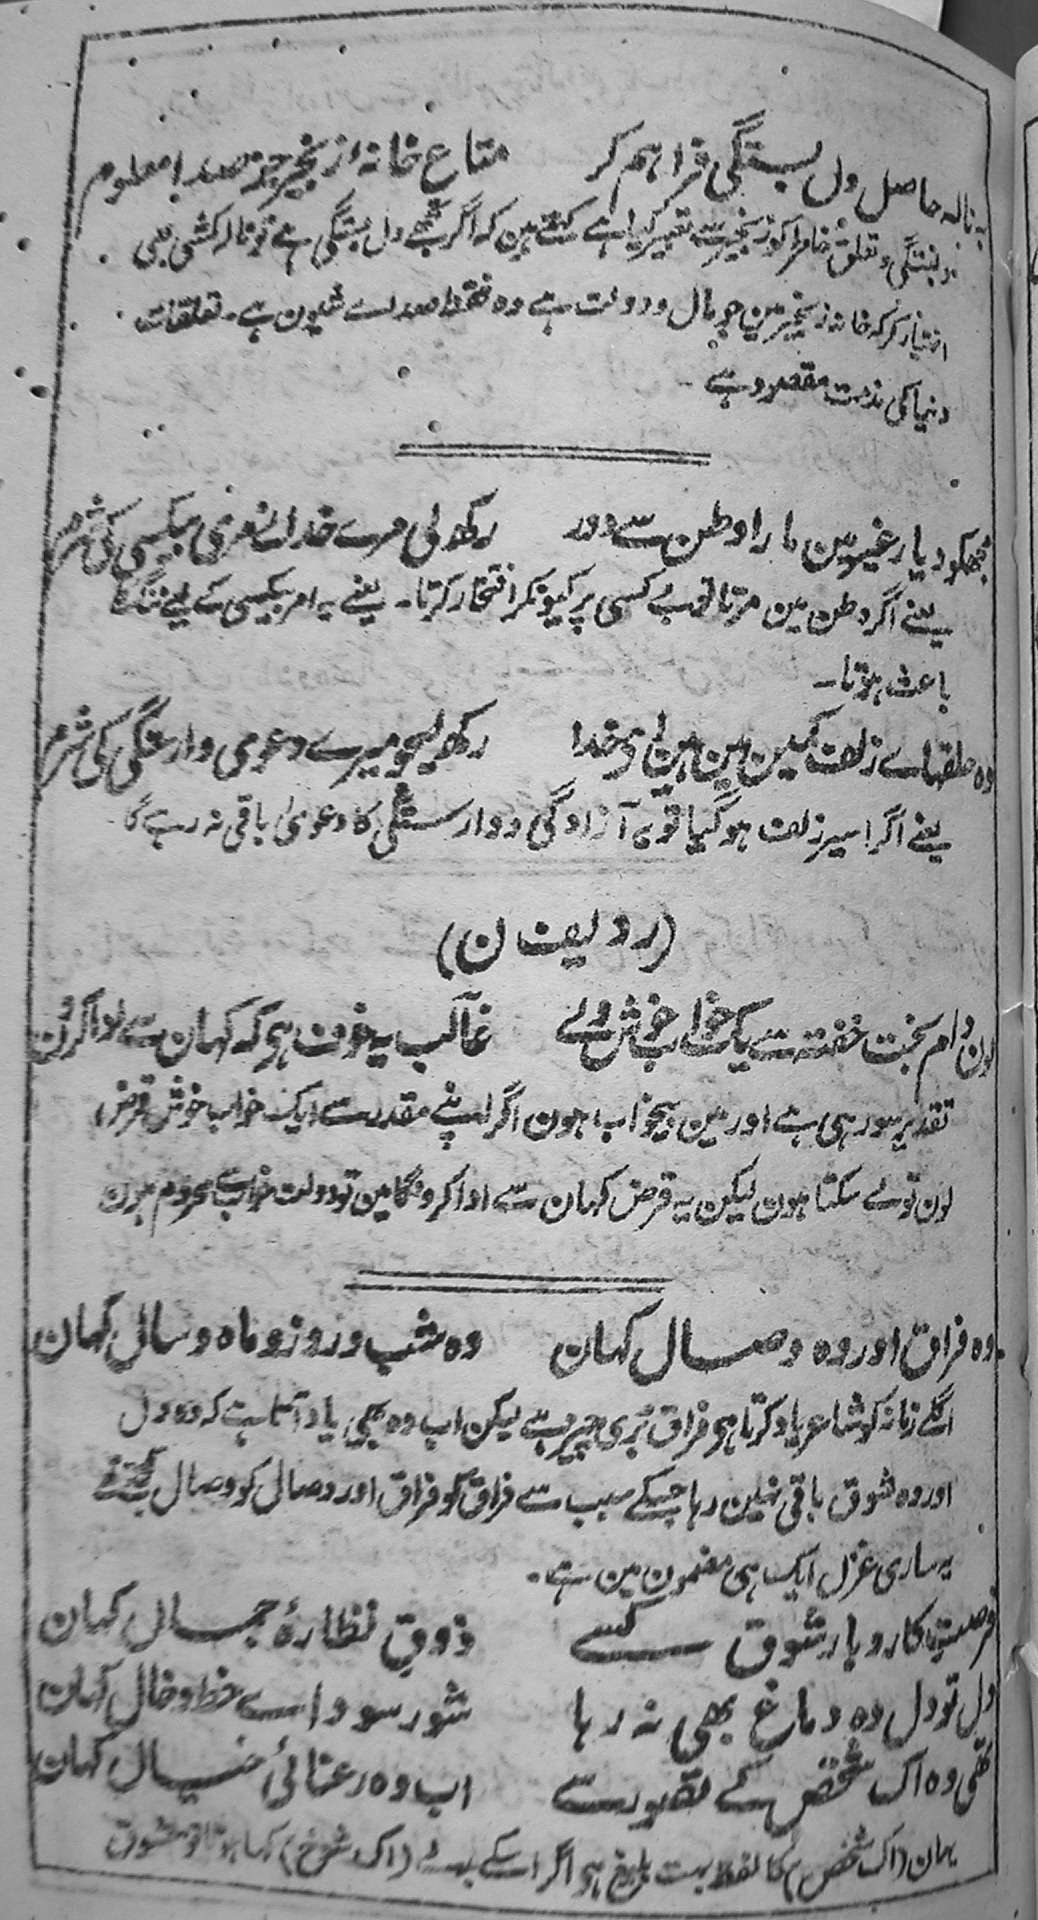 بہ نالہ حاصل دل بستگی فراہم کر متاع خانۂ زنجیر جز صدا معلوم
دلبستگی و تعلق خاطر کو زنجیر سے تعبیر کیا ہے کہتے ہین کہ اگر تجھے دل بستگی ہے تو نالہ کشی بھی
اختیار کر کہ خانہ زنجیر مین جو مال و دولت ہے وہ فقط صداے شیون ہے ۔ تعلقات
دنیا کی مذمت مقصود ہے ۔
مجھکو دیار غیر مین مارا وطن سے دور رکھ لی مرے خدا نے مری بیکسی کی شرم
یعنے اگر وطن مین مرتا تو بے کسی پر کیونکر افتخار کرتا ۔ یعنے یہ امر بیکسی کے لیے ننگ کا
باعث ہوتا ۔
وہ حلقہاے زلف کمین مین ہین ای خدا رکھ لیجو میرے دعوی وارستگی کی شرم
یعنے اگر اسیر زلف ہو گیا تو پھر آزادگی و وارستگی کا دعویٰ باقی نہ رہے گا
(ردیف ن)
لون وام بخت خفتہ سے یک خواب خوش ولے غالب یہ خوف ہی کہ کہان سے ادا کرون
تقدیر سو رہی ہے اور مین بیخواب ہون اگر اپنے مقدر سے ایک خواب خوش قرض
لون تو لے سکتا ہون لیکن یہ قرض کہان سے ادا کرونگا مین تو دولت خواب سے محروم ہون
وہ فراق اور وہ وصال کہان وہ شب و روز و ماہ و سال کہان
اگلے زمانہ کو شاعر یاد کرتا ہی فراق بری چیز ہے لیکن اب وہ بھی یاد آتا ہے کہ وہ دل
اور وہ شوق باقی نہین رہا جسکے سبب سے فراق کو فراق اور وصال کو وصال سمجھتے تھے
یہ ساری غزل ایک ہی مضمون مین ہے ۔
فرصت کاروبار شوق کسے ذوق نظارۂ جمال کہان
دل تو دل وہ دماغ بھی نہ رہا شور سوداے خط و خال کہان
تھی وہ اک شخص کے تصور سے اب وہ رعنائی خیال کہان
یہان (اک شخص) کا لفظ بہت بلیغ ہی اگر اسکے بدلے (اک شوخ) کہا ہوتا تو معشوق